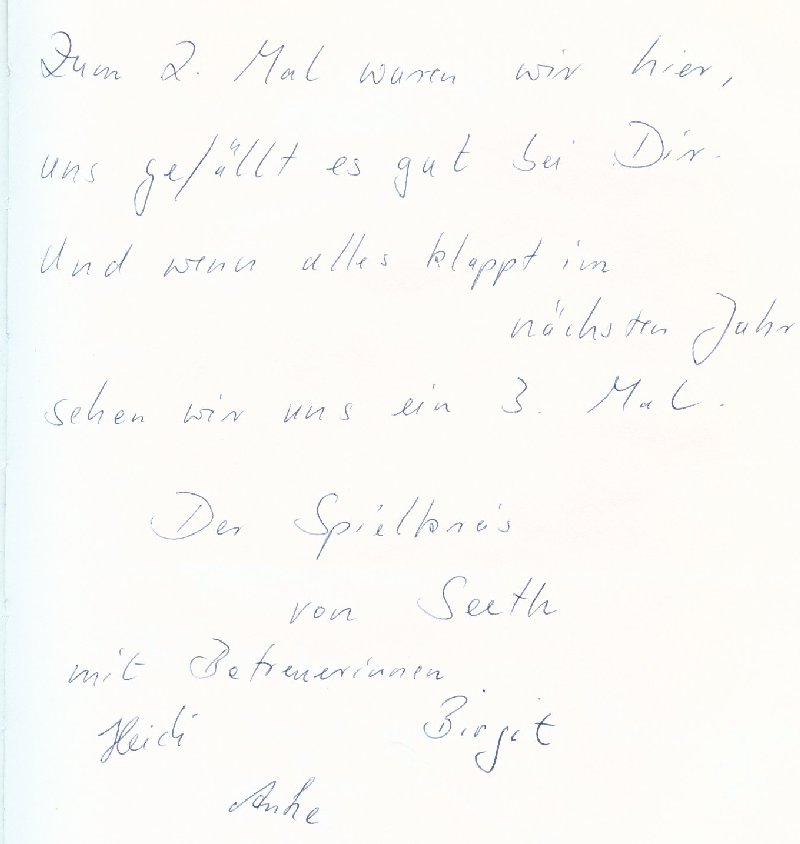 Zum 2. Mal waren wir hier,
uns gefällt es gut bei Dir.
Und wenn alles klappt im
nächsten Jahr
sehen wir uns ein 3. Mal.
Der Spielkreis
von Seeth
mit Betreuerinnen
Heidi Birgit
Anke